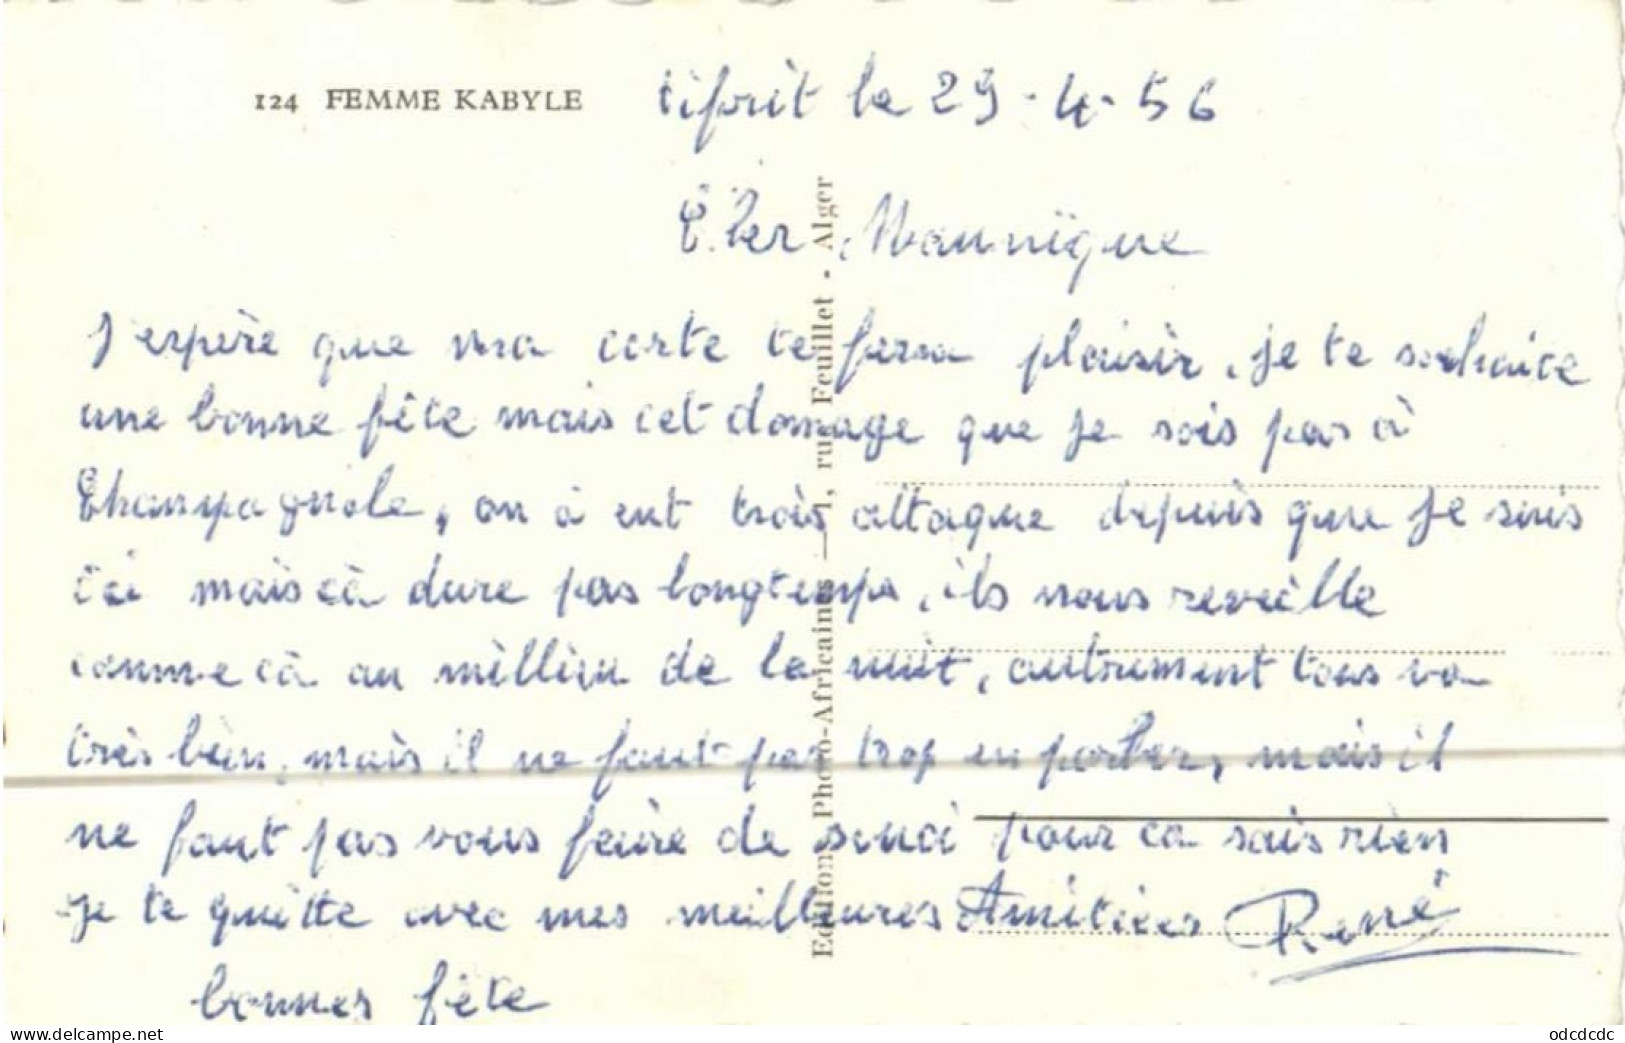 124 FEMME KABYLE
tifrit le 29-4-56
Cher Maunique
J'espère que ma carte te fera plaisir, je te souhaite
une bonne fête mais cet domage que je sois pas à
Champagnole, on à eut trois attaque depuis que je suis
ici mais cà dure pas longtemps, ils nous reveille
comme cà au millieu de la nuit, autrement tous va
très bien, mais il ne faut pas trop en parler, mais il
ne faut pas vous faire de souci pour ca sais rien
je te quitte avec mes meilleures Amitiées René
bonnes fête
Editions Photo-Africaines — rue Feuillet - Alger
delcampe.net
odcdcdc